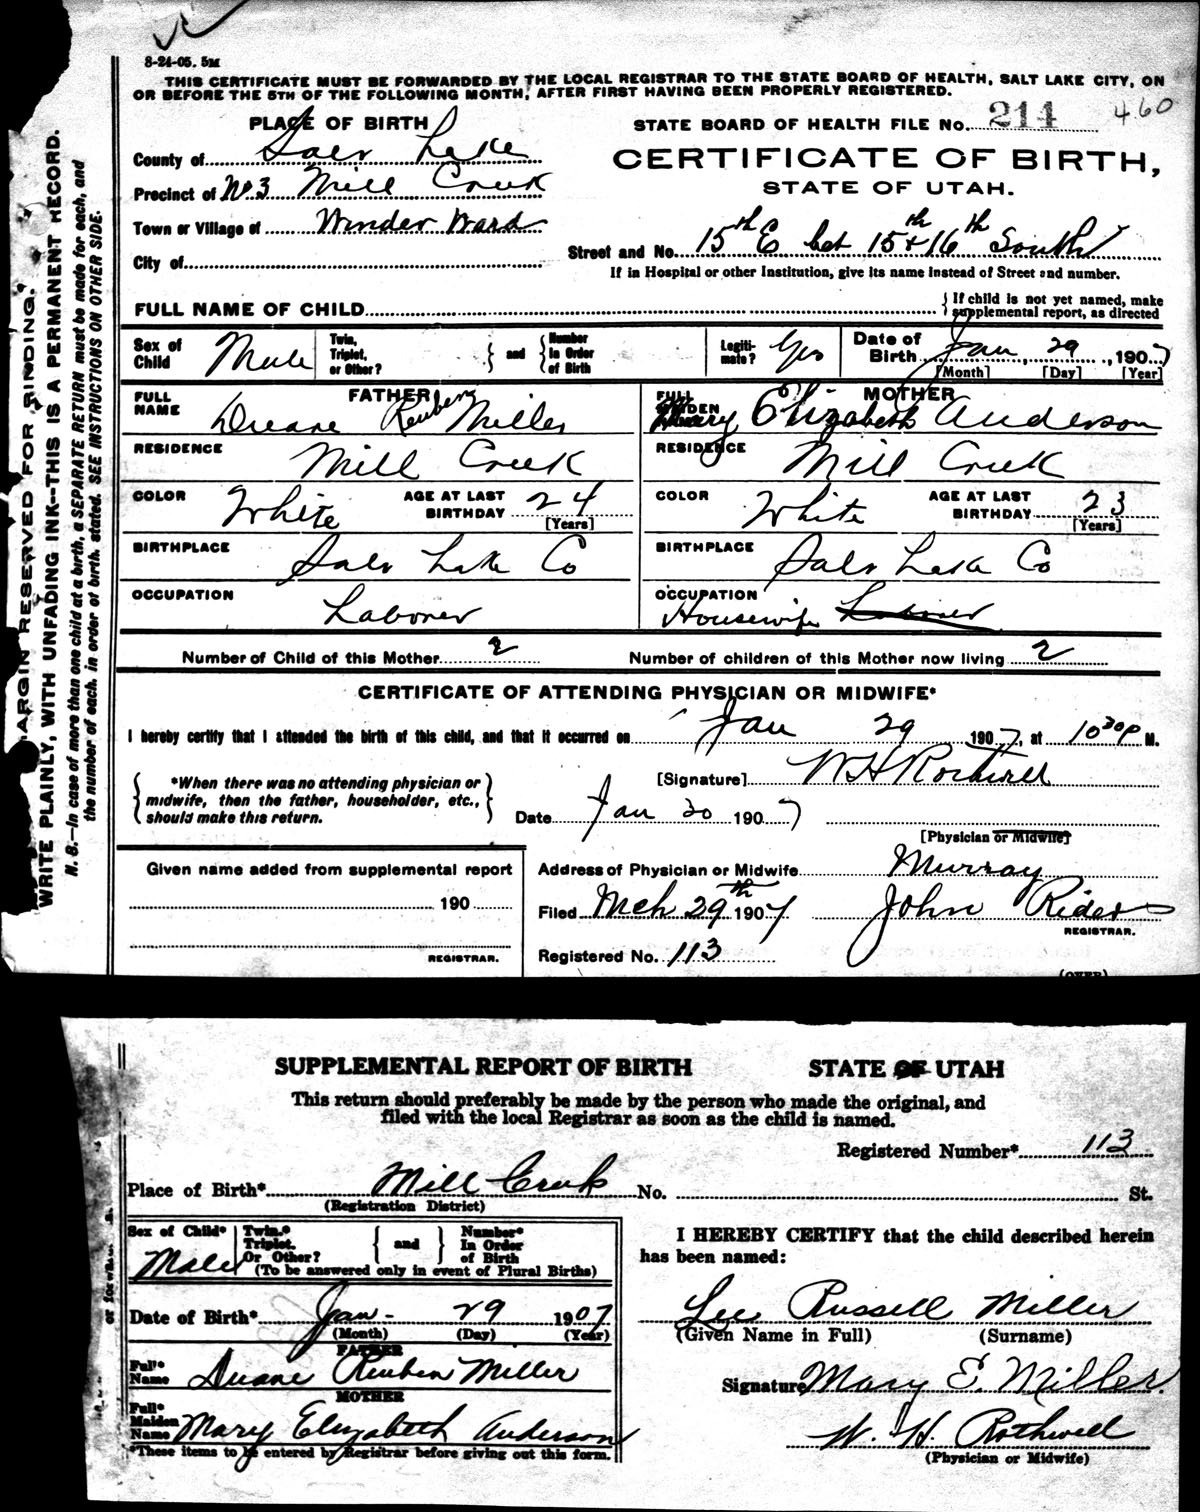 8-24-05. 5M
THIS CERTIFICATE MUST BE FORWARDED BY THE LOCAL REGISTRAR TO THE STATE BOARD OF HEALTH, SALT LAKE CITY, ON
OR BEFORE THE 5TH OF THE FOLLOWING MONTH, AFTER FIRST HAVING BEEN PROPERLY REGISTERED.
PLACE OF BIRTH
STATE BOARD OF HEALTH FILE No. 214 460
County of Salt Lake
CERTIFICATE OF BIRTH,
Precinct of No 3 Mill Creek
STATE OF UTAH.
Town or Village of Winder Ward
Street and No. 15th E bet 15+16th South
City of
If in Hospital or other Institution, give its name instead of Street and number.
FULL NAME OF CHILD
{If child is not yet named, make
supplemental report, as directed
Sex of Child Male
Twin, Triplet, or Other? } and { Number In Order of Birth
Legiti-mate? Yes
Date of Birth Jan 29, 1907
[Month] [Day] [Year]
FATHER
FULL NAME Duane Reuben Miller
MOTHER
FULL MAIDEN Mary Elizabeth Anderson
RESIDENCE Mill Creek
RESIDENCE Mill Creek
COLOR White AGE AT LAST BIRTHDAY 24 [Years]
COLOR White AGE AT LAST BIRTHDAY 23 [Years]
BIRTHPLACE Salt Lake Co
BIRTHPLACE Salt Lake Co
OCCUPATION Laborer
OCCUPATION Housewife Laborer
Number of Child of this Mother 2 Number of children of this Mother now living 2
CERTIFICATE OF ATTENDING PHYSICIAN OR MIDWIFE*
I hereby certify that I attended the birth of this child, and that it occurred on Jan 29 1907, at 10 30 P M.
{ *When there was no attending physician or
midwife, then the father, householder, etc.,
should make this return. }
[Signature] W H Rothwell
Date Jan 30 1907
[Physician or Midwife]
Given name added from supplemental report
190
REGISTRAR.
Address of Physician or Midwife Murray
Filed Mch 29th 1907 John Rider
REGISTRAR.
Registered No. 113
(OVER)
MARGIN RESERVED FOR BINDING.
WRITE PLAINLY, WITH UNFADING INK--THIS IS A PERMANENT RECORD.
N. B.--In case of more than one child at a birth, a SEPARATE RETURN must be made for each, and
the number of each, in order of birth, stated. SEE INSTRUCTIONS ON OTHER SIDE.
SUPPLEMENTAL REPORT OF BIRTH STATE OF UTAH
This return should preferably be made by the person who made the original, and
filed with the local Registrar as soon as the child is named.
Registered Number* 113
Place of Birth* Mill Creek No. St.
(Registration District)
Sex of Child* Male
Twin,* Triplet, Or Other? { and } Number* In Order of Birth
(To be answered only in event of Plural Births)
Date of Birth* Jan- 29 1907
(Month) (Day) (Year)
FATHER
Full* Name Duane Reuben Miller
MOTHER
Full* Maiden Name Mary Elizabeth Anderson
*These items to be entered by Registrar before giving out this form.
I HEREBY CERTIFY that the child described herein
has been named:
Lee Russell Miller
(Given Name in Full) (Surname)
Signature Mary E. Miller.
W. H. Rothwell
(Physician or Midwife)